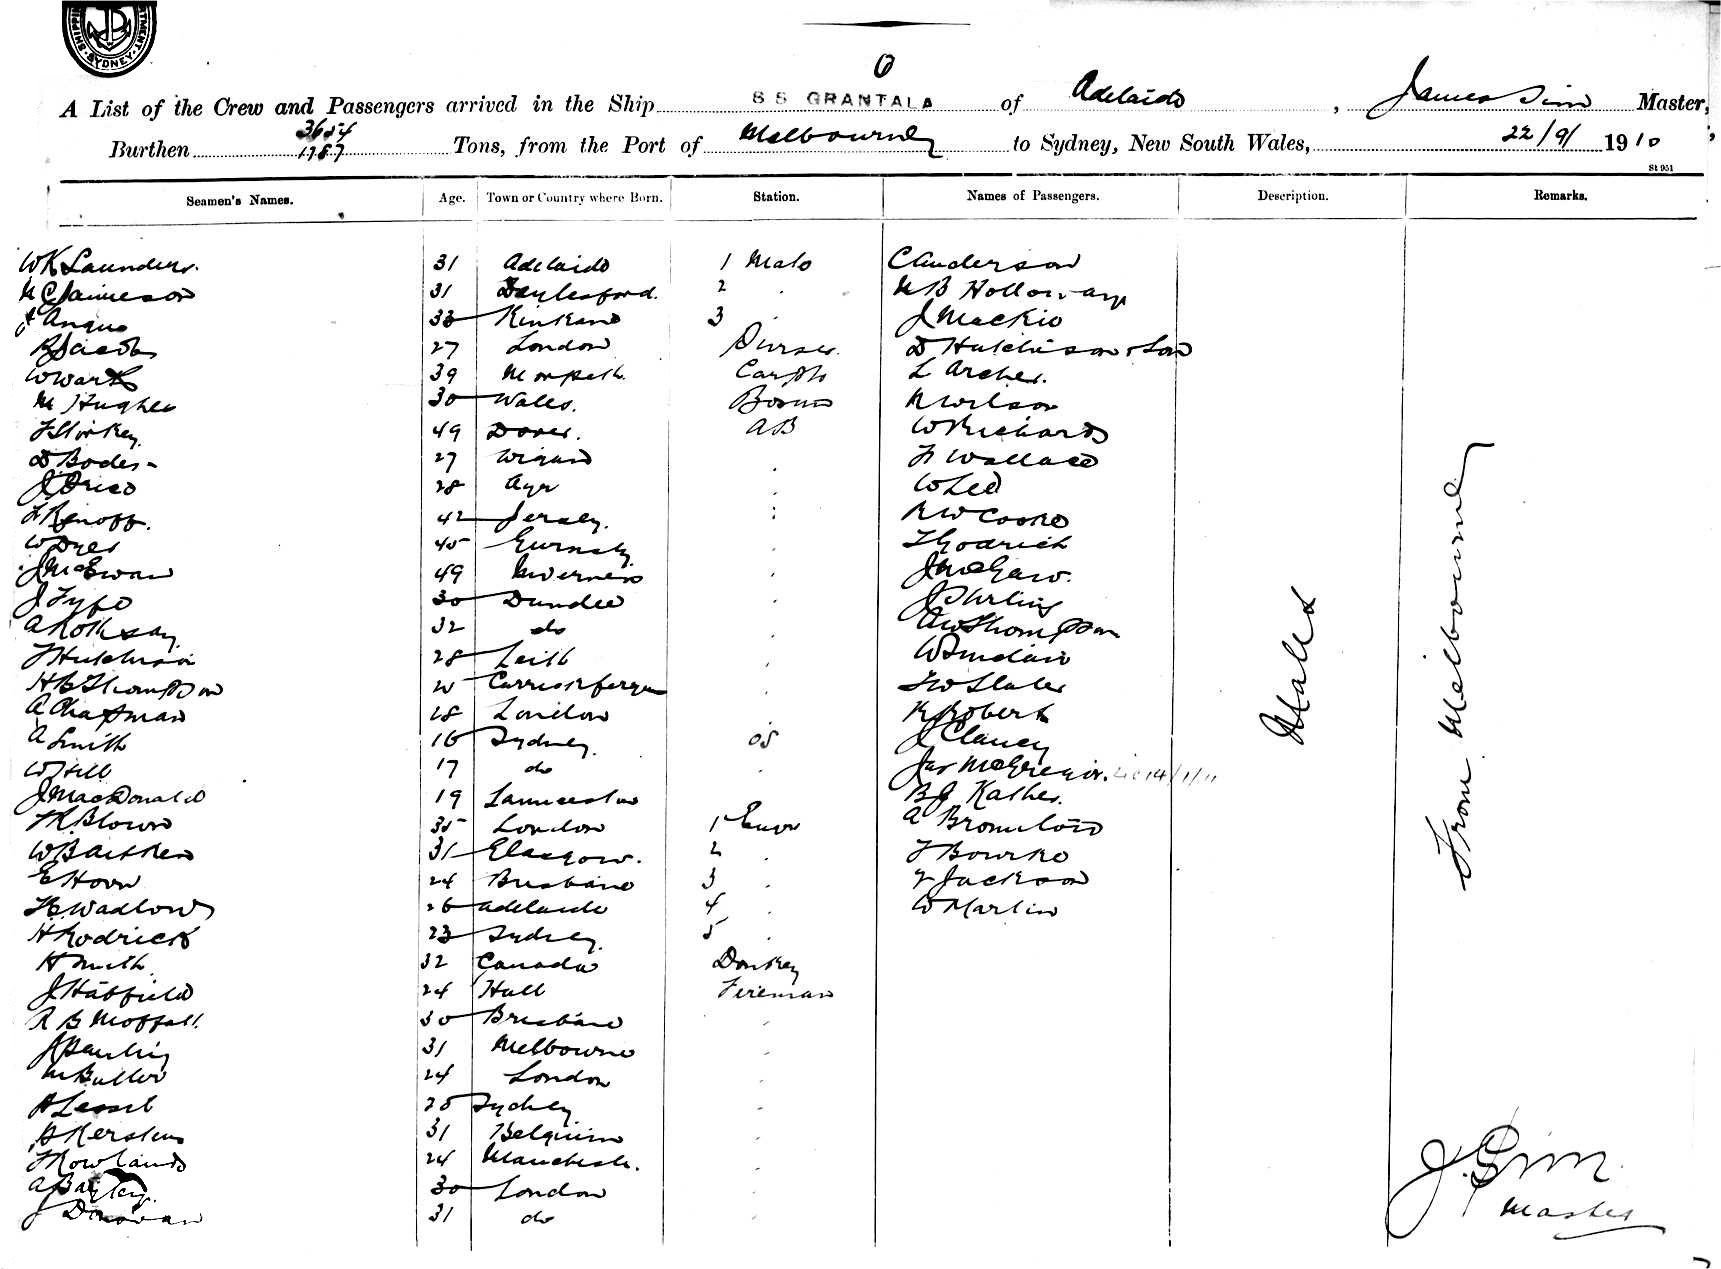 SHIPPING
SYDNEY
6
A List of the Crew and Passengers arrived in the Ship S S GRANTALA of Adelaide, James Sim Master,
Burthen 3654 1987 Tons, from the Port of Melbourne to Sydney, New South Wales, 22/9/1910
St 951
Seamen's Names. Age. Town or Country where Born. Station. Names of Passengers. Description. Remarks.
W K Saunders. 31 Adelaide 1 Mate C Anderson
M C Jamieson 31 Daylesford. 2 M B Holloway
Angus 33 3 J Mackie
R Jacobs 27 London Purser. D Hutchison & Son
W Wark 39 Morpeth. Carptr L Archer.
M Hughes 30 Wales. Bosun R Wilson
F Storkey. 49 Dover. AB W Richards
D Boden 27 Wigan F Wallace
J Price 28 Ayr W Lee
F Renoff. 42 Jersey. R W Cooke
W Dyer 45 Gurnsey T Godrich
J McEwan 49 Inverness J McGaw.
J Fyfe 30 Dundee J Stirling
A Rothsay. 32 do A W Thompson
T Hutchison 28 Leith W Sinclair
H B Thompson 20 Carrickfergus F W Slater
A Chapman 18 London R Robert
A Smith 16 Sydney. OS J Clancy
W Hill 17 do Jas McGregor.
J MacDonald 19 Launceston B J Kasher.
T R Blown 35 London 1 Engr A Bromilow
W B Aitken 31 Glasgow. 2 T Bourke
E Horn 24 Brisbane 3 Jackson
H Wadlow 26 Adelaide 4 W Martin
H Rodrick 23 Sydney. 5
H Smith. 32 Canada Donkey
J Hatfield 24 Hull Fireman
R B Moffatt. 30 Brisbane
J Pauling 31 Melbourne
M Butler 24 London
A Lessel 25 Sydney
A Kerstens 31 Belgium
T Rowlands 24 Manchester.
A Bayley. 30 London
J Donovan 31 do
Males
From Melbourne
J Sim
Master